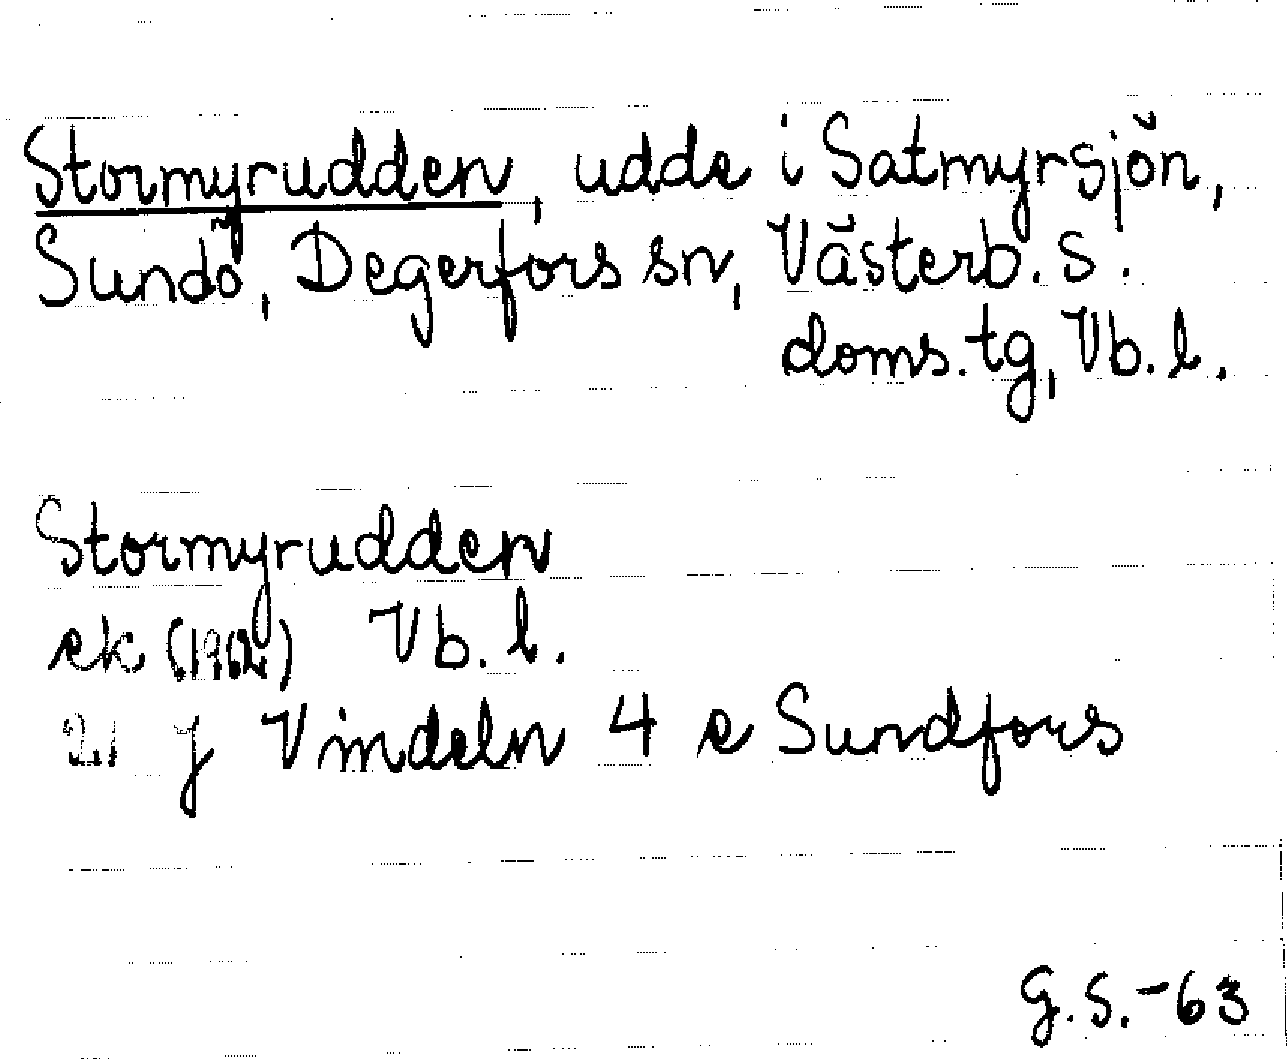 Stormyrudden, udde i Satmyrsjön,
Sundö, Degerfors sn, Västerb. s.
doms. tg, Vb. l.
Stormyrudden
ek (1962) Vb. l.
21 J Vindeln 4 e Sundfors
G.S.-63